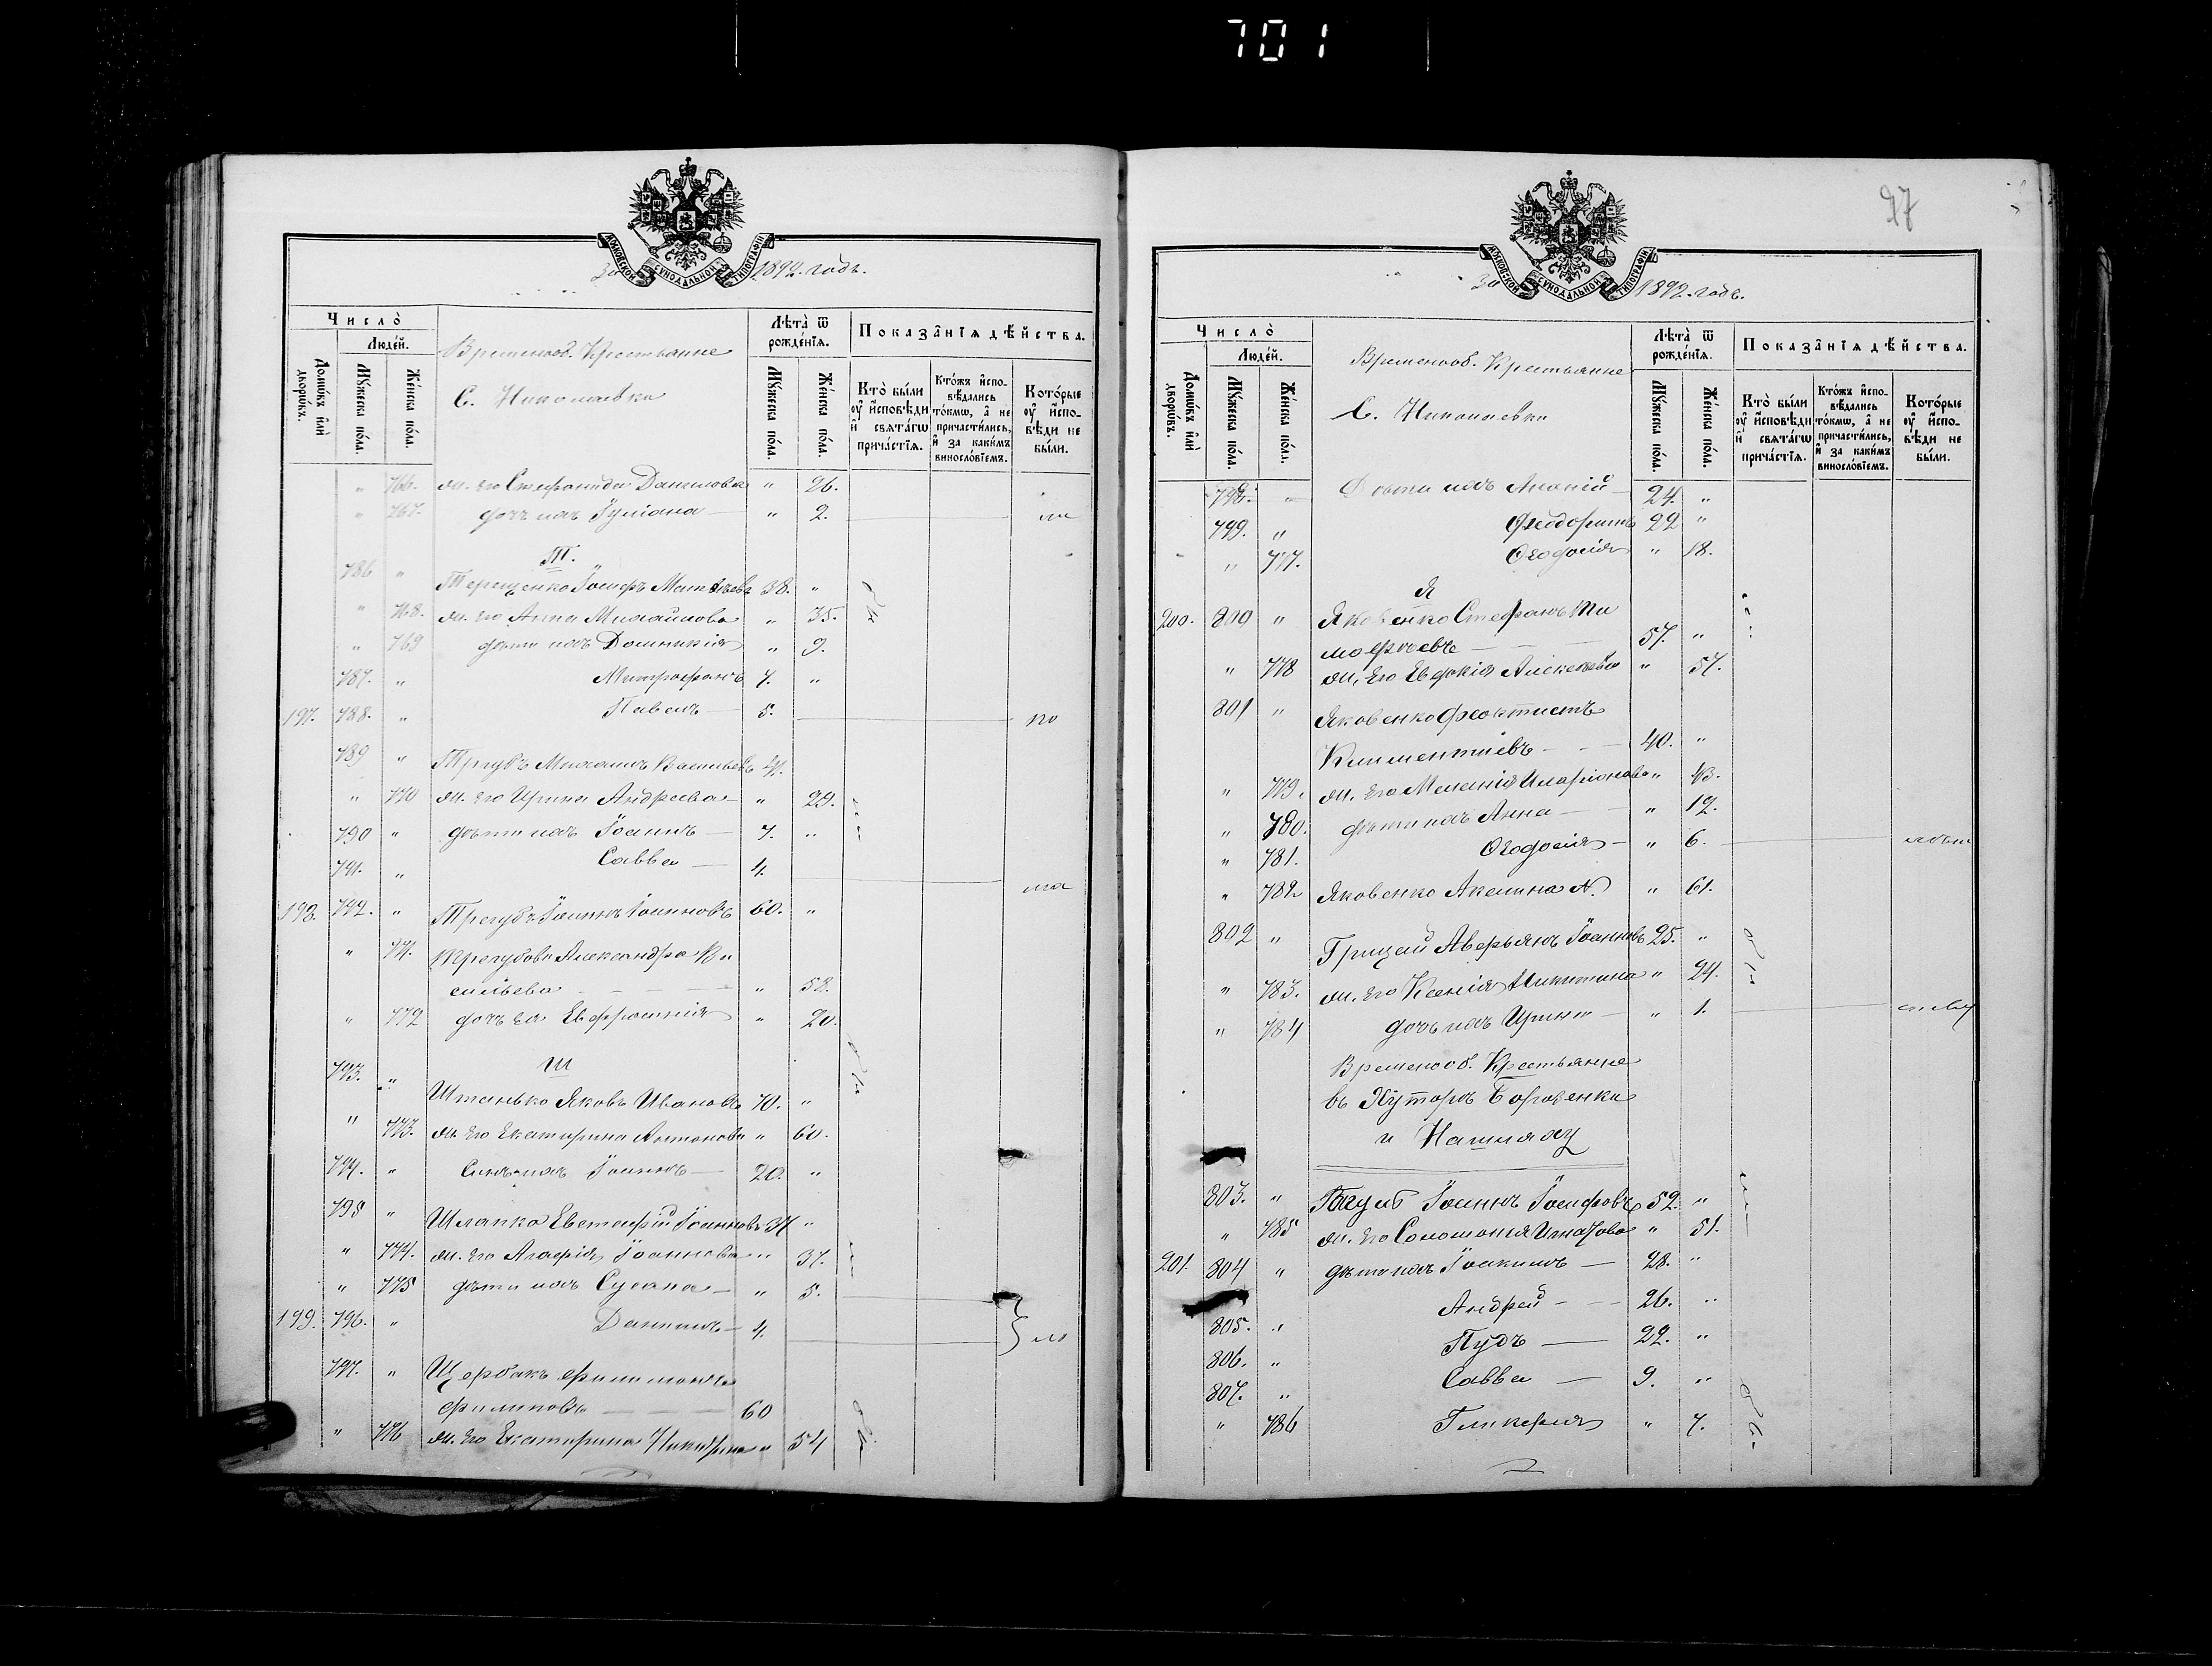 701
МОСКОВСКОЙ СѴНОДАЛЬНОЙ ТИПОГРАФІИ
За 1892. годъ.
Число̀
Людéй.
Домѡ́въ и҆лѝ дворѡ́въ.
Мꙋ́жеска по́ла.
Же́нска по́ла.
Временооб. Крестьянне
С. Николаевка
Лѣта̀ ѿ рожде́нїѧ.
Мꙋ́жеска по́ла.
Же́нска по́ла.
Показа̂нїѧ дѣ́йства.
Кто̀ бы́ли ᲂу҆ и҆сповѣ́ди и҆ свѧта́гѡ прича́стїѧ.
Кто́жъ и҆сповѣ́дались то́кмѡ, а҆ не причасти́лись, и҆ за каки́мъ винослóвїемъ.
Кото́рые ᲂу҆ и҆сповѣ́ди не бы́ли.
" 766. ж. его Стефанида Данилова " 26.
" 767. дочь ихъ Іуліана — " 2.
Т.
786 " Терещенко Іосифъ Матвѣевъ 38. "
" 768. ж. его Анна Михайлова " 35.
" 769 дѣти ихъ Домникія " 9.
787. " Митрофанъ 7. "
197. 788. " Павелъ — 5. по
789 " Трегубъ Михаилъ Васильевъ 41.
" 770 ж. его Ирина Андреева — " 29.
790 " дѣти ихъ Іоаннъ — 7. "
791. " Савва — 4.
198. 792. " Трегубъ Іоаннъ Іоанновъ 60. "
" 771. Трегубова Александра Ва
сильева — " 58.
" 772 дочь ея Евфросинія " 20.
Ш
793. " Штанько Яковъ Ивановъ 70. "
" 773. ж. его Екатерина Антонова " 60.
794. " Сынъ ихъ Іоаннъ — 20. "
795 " Шлапка Евстафій Іоанновъ 37 "
" 774. ж. его Агафія Іоаннова " 37.
" 775 дѣти ихъ Сусана — " 5.
199. 796. " Даніилъ — 4.
797. " Щербакъ Филимонъ
Филиповъ — 60
" 776 ж. его Екатерина " 54
27
МОСКОВСКОЙ СѴНОДАЛЬНОЙ ТИПОГРАФІИ
За 1892. годъ.
Число̀
Людéй.
Домѡ́въ и҆лѝ дворѡ́въ.
Мꙋ́жеска по́ла.
Же́нска по́ла.
Временооб. Крестьянне
С. Николаевка
Лѣта̀ ѿ рожде́нїѧ.
Мꙋ́жеска по́ла.
Же́нска по́ла.
Показа̂нїѧ дѣ́йства.
Кто̀ бы́ли ᲂу҆ и҆сповѣ́ди и҆ свѧта́гѡ прича́стїѧ.
Кто́жъ и҆сповѣ́дались то́кмѡ, а҆ не причасти́лись, и҆ за каки́мъ винослóвїемъ.
Кото́рые ᲂу҆ и҆сповѣ́ди не бы́ли.
798. — Дѣти ихъ Ананій — 24. "
799. " Феодоритъ 22 "
" 777. Феодосія " 18.
Я
200. 800 " Яковенко Стефанъ Ти
мофѣевъ — 57. "
" 778 ж. его Евдокія " 57.
801 " Яковенко Феоктистъ
Климентіевъ — 40. "
" 779. ж. его Меланія Иларіонова " 43.
" 780. дѣти ихъ Анна — " 12.
" 781. Феодосія — " 6.
" 782 Яковенко Акелина N. " 61.
802 " Грицай Аверьянъ Іоанновъ 25. "
" 783. ж. его Ксенія Никитина " 24.
" 784 дочь ихъ Ирина — " 1.
Временооб. Крестьянне
въ Хуторѣ
и
803. " Іоаннъ Іосифовъ 52. "
" 785 ж. его Соломонія Игнатова " 51.
201. 804 " дѣти ихъ Іоакимъ — 28. "
805. " Андрей — 26. "
806. " Пудъ — 22. "
807. " Савва — 9. "
" 786 Гликерія " 7.